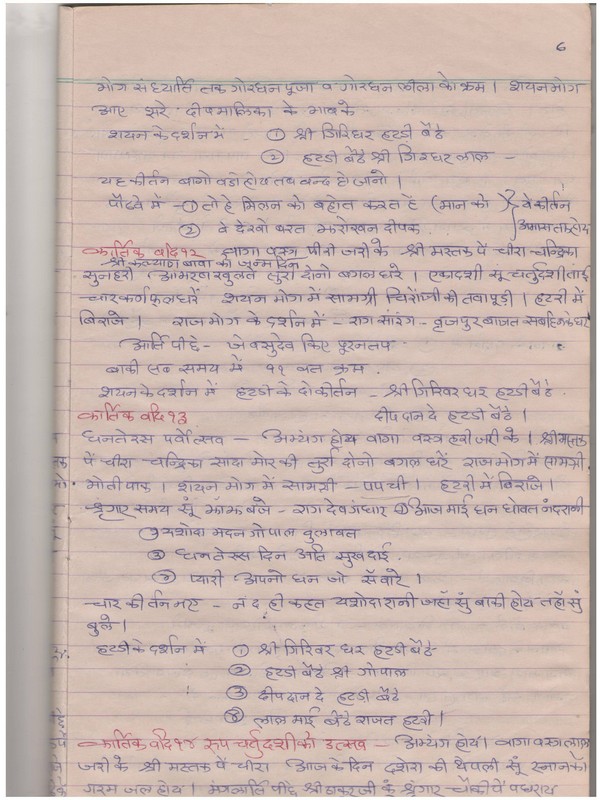 6
भोग संध्यार्ति तक गोरधन पूजा व गोरधन लीला को क्रम । शयन भोग
आए झरे दीपमालिका के भाव के
शयन के दर्शन में - ① श्री गिरिधर हटडी बैठे
② हटडी बैठे श्री गिरधर लाल -
यह कीर्तन बागो वडो होय तब बन्द हो जानो ।
पोढवे में - ① तो हे मिलन को बहोत करत हे (मान को) वे कीर्तन
② वे देखो बरत झरोखन दीपक
कार्तिक वदि १२ बागा वस्त्र पीरी जरी के श्री मस्तक पें चीरा चन्द्रिका
श्री कल्याण बावा को जन्म दिन
सुनहरी आभरण खुलते तुर्रा दोनो बगल धरें । एकादशी सू चर्तुदशी ताई
चार कर्णफूल धरें शयन भोग में सामग्री चिरोंजी की तवापूडी । हटरी में
बिराजे । राजभोग के दर्शन में - राग सारंग - वृजपुर बाजत सबहिन के घर
आर्ति पीछे - जे वसुदेव किए पूरन तप
बाकी सब समय में ११ वत क्रम
शयन के दर्शन में हटडी के दो कीर्तन - श्री गिरिवर धर हटडी बैठे
दीपदान दे हटडी बैठे ।
कार्तिक वदि १३
धनतेरस पर्वोत्सव - अभ्यंग होय वागा वस्त्र हरी जरी के । श्री मस्तक
पें चीरा चन्द्रिका सादा मोर की तुर्रा दोनो बगल धरें राजभोग में सामग्री
मोतीपाक । शयन भोग में सामग्री - पपची । हटरी में बिराजे ।
श्रृंगार समय सूं झांझ बजे - राग देवगंधार ① आज माई धन धोवत नंदरानी
② यशोदा मदन गोपाल बुलावत
③ धनतेरस दिन अति सुखदाई .
प्यारी अपनो धन जो सँवारे ।
चार कीर्तन भए - नंद ही कहत यशोदारानी जहाँ सुं बाकी होय तहाँ सुं
बुले ।
हटडी के दर्शन में ① श्री गिरिवर धर हटडी बैठे
② हटडी बैठे श्री गोपाल
③ दीपदान दे हटडी बैठे
④ लाल माई बैठे राजत हटरी ।
कार्तिक वदि १४ रूप चर्तुदशी को उत्सव - अभ्यंग होय । वागा वस्त्र लाल
जरी के श्री मस्तक पें चीरा आज के दिन दशेरा की थैपली सूं स्नान को
गरम जल होय । मंगलार्ति पीछे श्री ठाकुर जी के श्रृंगार चौकी पें पधराय